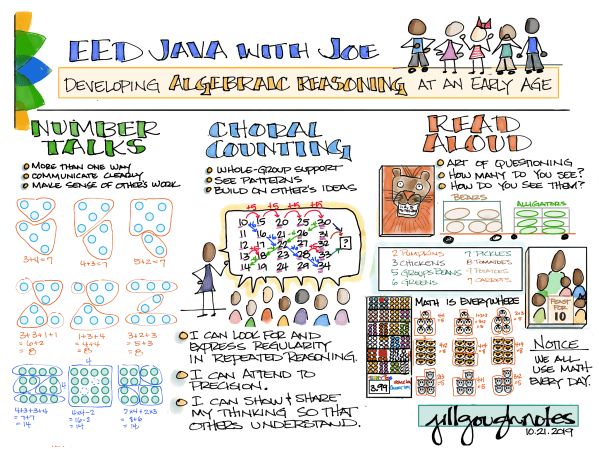 EED JAVA WITH JOE
DEVELOPING ALGEBRAIC REASONING AT AN EARLY AGE
NUMBER TALKS
MORE THAN ONE WAY
COMMUNICATE CLEARLY
MAKE SENSE OF OTHER'S WORK
3+4=7
4+3=7
5+2=7
3+3+1+1
=6+2
=8
1+3+4
=4+4
=8
3+2+3
=5+3
=8
4
4
4+3+3+4
=7+7
=14
4x4-2
=16-2
=14
2x4+2x3
=8+6
=14
CHORAL COUNTING
WHOLE-GROUP SUPPORT
SEE PATTERNS
BUILD ON OTHER'S IDEAS
+5 +5 +5 +5
10 15 20 25 30
11 16 21 26 31
12 17 22 27 ?
13 18 23 28 33
14 19 24 29 34
I CAN LOOK FOR AND
EXPRESS REGULARITY
IN REPEATED REASONING.
I CAN ATTEND TO
PRECISION.
I CAN SHOW & SHARE
MY THINKING SO THAT
OTHERS UNDERSTAND.
READ ALOUD
ART OF QUESTIONING
HOW MANY DO YOU SEE?
HOW DO YOU SEE THEM?
BEARS
ALLIGATORS
2 PUMPKINS
3 CHICKENS
5 GROUPS BEANS
6 GREENS
7 PICKLES
8 TOMATOES
9 POTATOES
7 CARROTS
FEAST FOR
10
MATH IS EVERYWHERE
3.99
NOTICE
WE ALL
USE MATH
EVERY DAY.
jillgoughnotes
10.21.2019